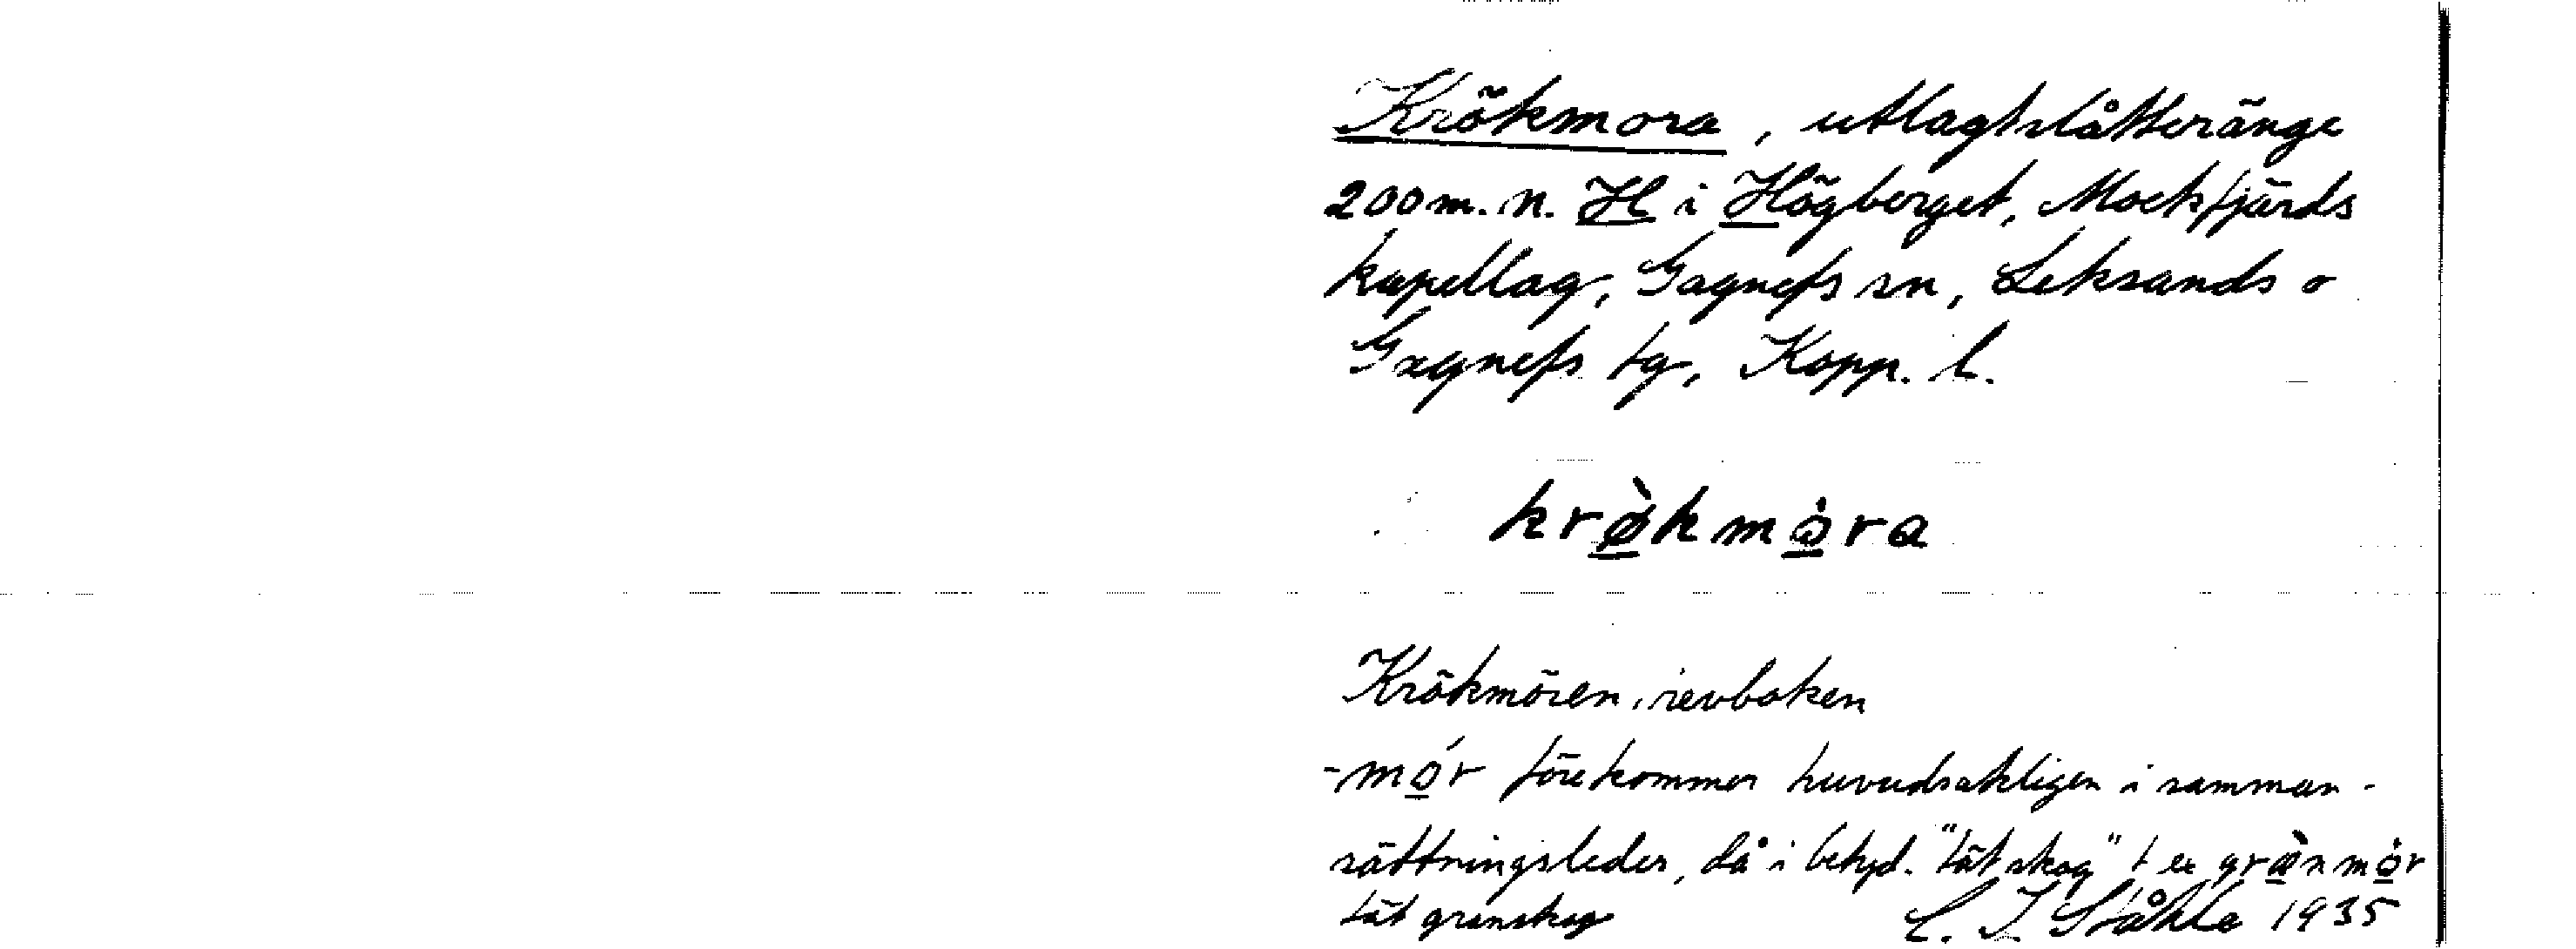 Krökmora, utlagtslåtteränge
200 m. n. H i Högberget, Mockfjärds
kapellag, Gagnefs sn, Leksands o
Gagnefs tg, Kopp. l.
krø̀kmòra
Krökmören, revboken
-mór förekommer huvudsakligen i samman-
sättningsleder, då i betyd. "tät skog" t ex grànmòr
tät granskog C. I. Ståhle 1935